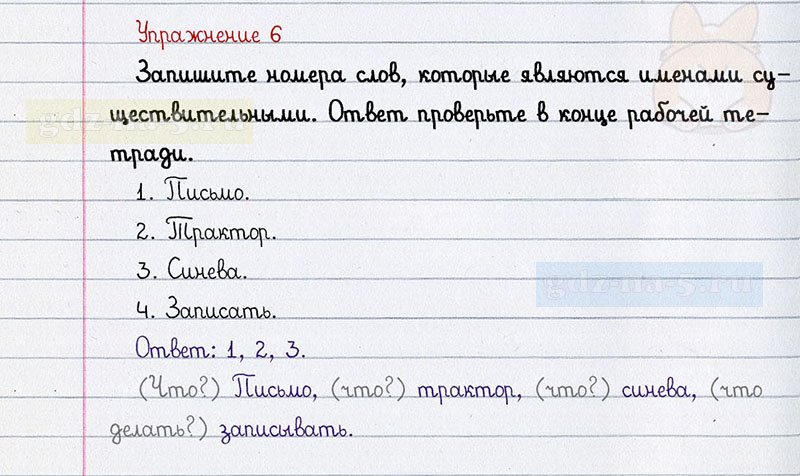 Упражнение 6
Запишите номера слов, которые являются именами су-
ществительными. Ответ проверьте в конце рабочей те-
тради.
1. Письмо.
2. Трактор.
3. Синева.
gdz-na-5.ru
4. Записать.
Ответ: 1, 2, 3.
(Что?) Письмо, (что?) трактор, (что?) синева, (что
делать?) записывать.